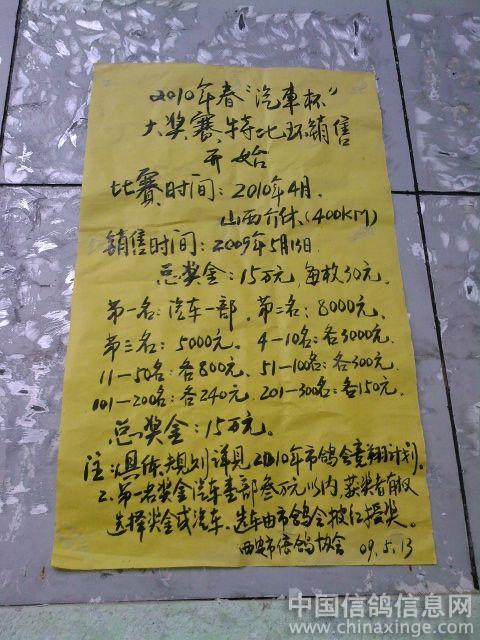 2010年春"汽車杯"
大奖赛特比环銷售
开始
比賽时间：2010年4月.
山西介休、(400KM)
銷售时间：2009年5月13日.
总奖金：15万元，每枚30元。
第一名：汽车一部，第二名：8000元，
第三名：5000元。4—10名：各3000元，
11—50名：各800元、51—100名：各300元，
101—200名：各240元，201—300名：各150元，
总奖金：15万元。
注：1.具体规划详见2010年市鸽会竞翔计划.
2.第一名奖金汽车壹部叁万元以内，获奖者有权
选择奖金或汽车。选车由市鸽会披红授奖。
西安市信鸽协会 09.5.13
中国信鸽信息网
www.chinaxinge.com